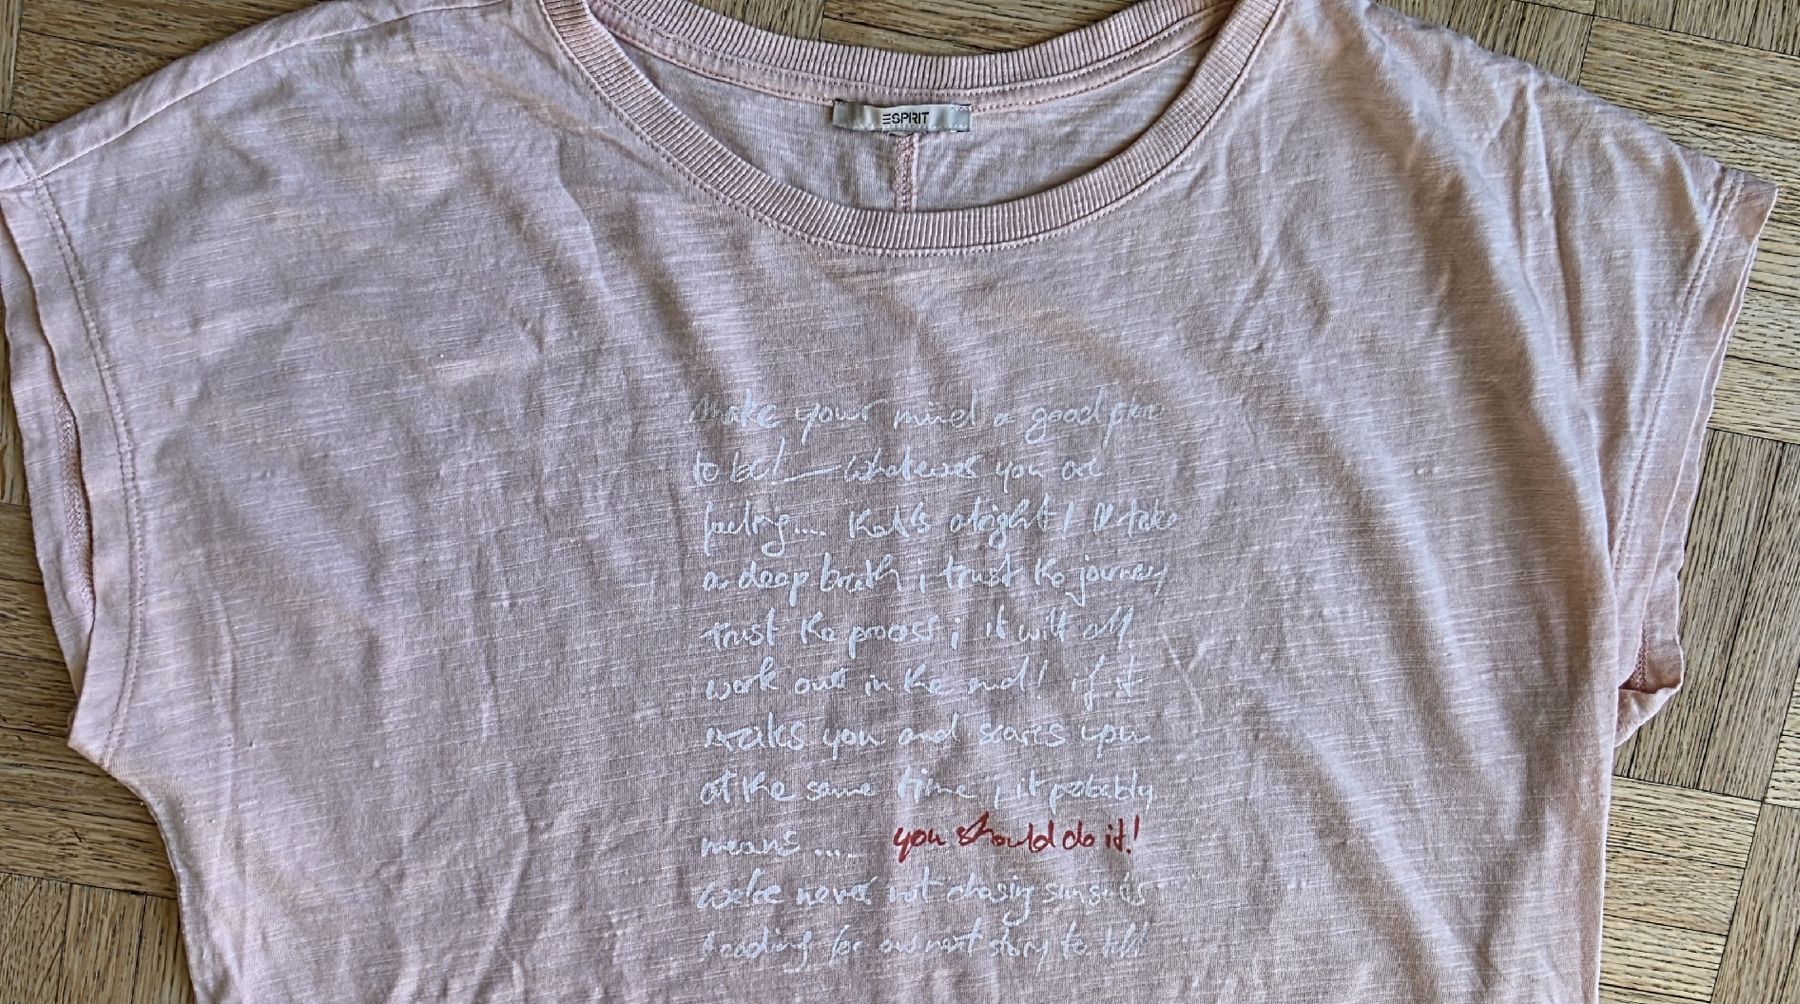 ESPRIT
Make your mind a good place
to be! — whatever you are
feeling.... that's alright! I'll take
a deep breath; trust the journey
trust the process; it will all
work out in the end! if it
excites you and scares you
at the same time; it probably
means .... you should do it!
we're never not chasing sunsets
heading for our next story to tell